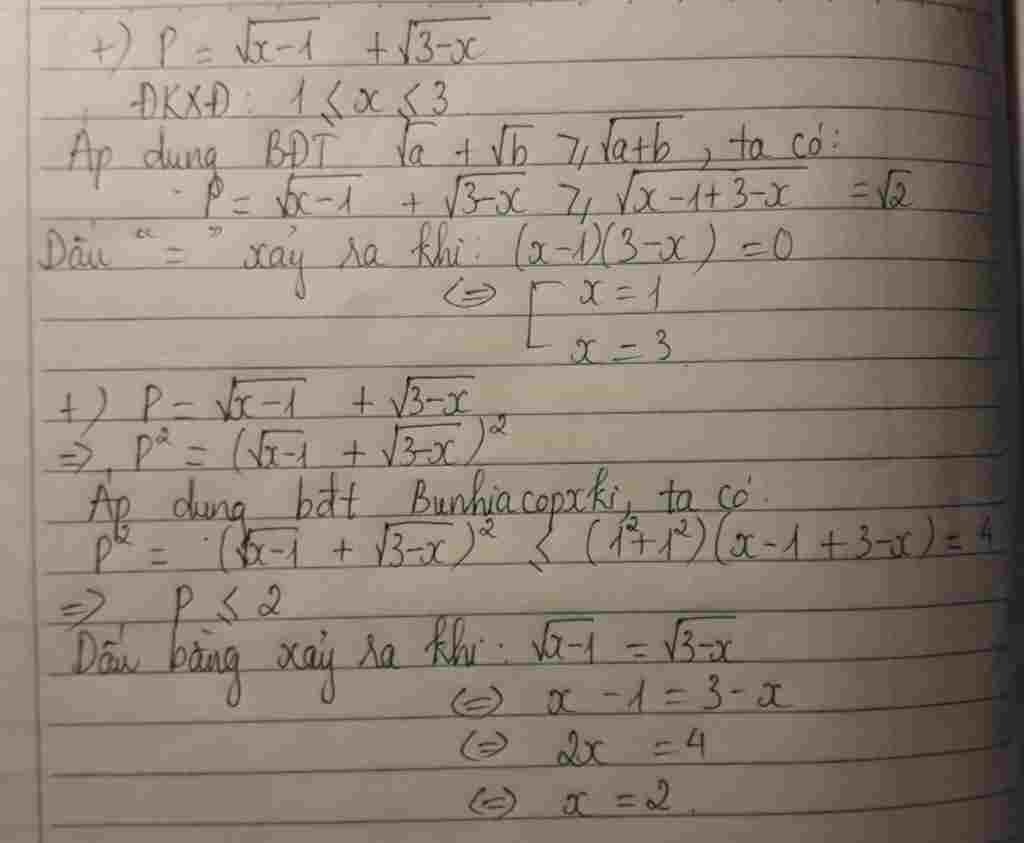 +) P = √(x-1) + √(3-x)
ĐKXĐ: 1 ≤ x ≤ 3
Áp dung BĐT √a + √b ≥ √(a+b), ta có:
P = √(x-1) + √(3-x) ≥ √(x-1+3-x) = √2
Dấu "=" xảy ra khi: (x-1)(3-x) = 0
⇔ [ x = 1
x = 3
+) P = √(x-1) + √(3-x)
⇒ P² = (√(x-1) + √(3-x))²
Áp dung bđt Bunhiacopxki, ta có
P² = (√(x-1) + √(3-x))² ≤ (1²+1²)(x-1+3-x) = 4
⇒ P ≤ 2
Dấu bằng xảy ra khi: √(x-1) = √(3-x)
⇔ x - 1 = 3 - x
⇔ 2x = 4
⇔ x = 2.